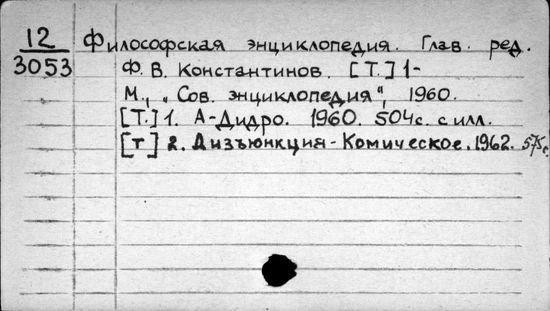 12 Философская энциклопедия. Глав. ред.
3053 Ф. В. Константинов. [Т.] 1-
М., „Сов. энциклопедия", 1960.
[Т.] 1. А-Дидро. 1960. 504с. с илл.
[т] 2. Дизъюнкция-Комическое. 1962. 575с.